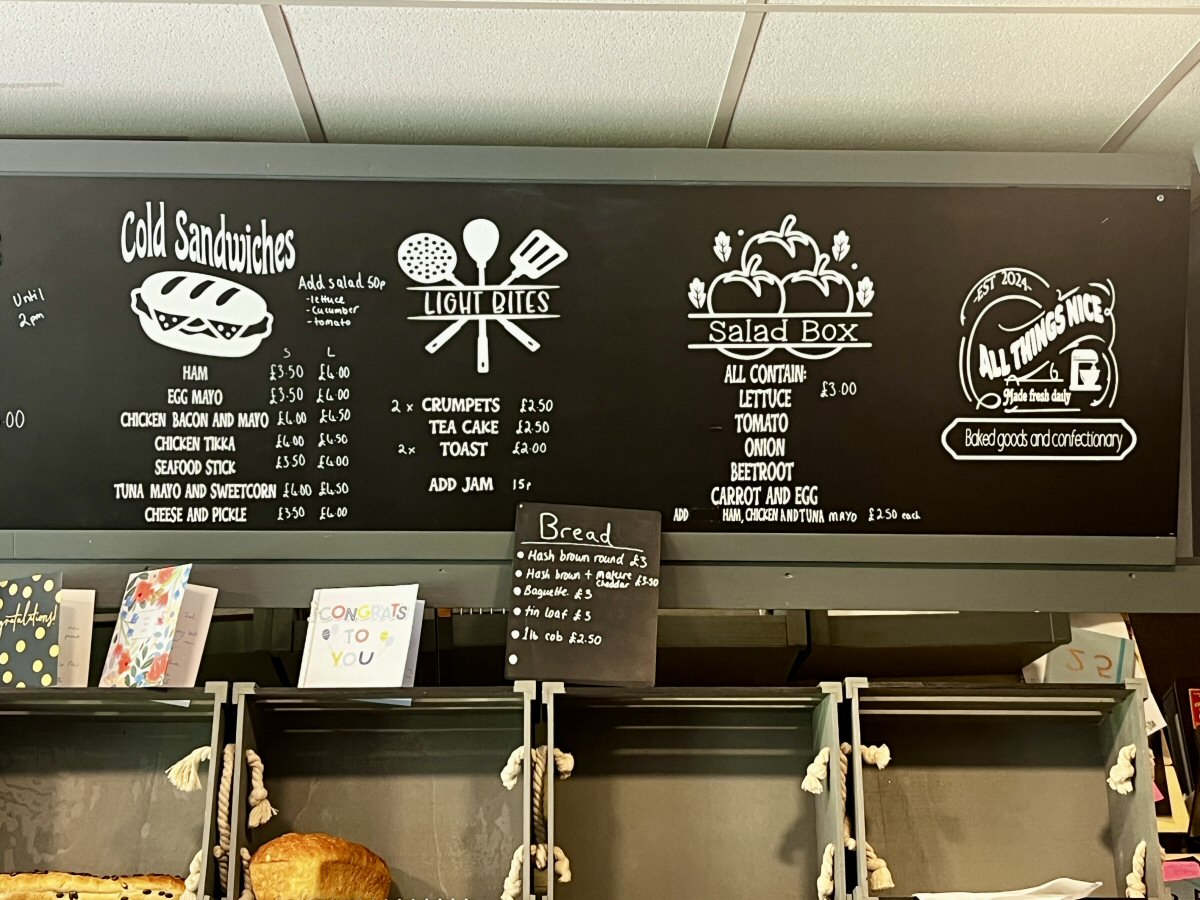 Until
2pm
00
Cold Sandwiches
Add salad 50p
- lettuce
- Cucumber
- tomato
S L
HAM £3.50 £4.00
EGG MAYO £3.50 £4.00
CHICKEN BACON AND MAYO £4.00 £4.50
CHICKEN TIKKA £4.00 £4.50
SEAFOOD STICK £3.50 £4.00
TUNA MAYO AND SWEETCORN £4.00 £4.50
CHEESE AND PICKLE £3.50 £4.00
LIGHT BITES
2 x CRUMPETS £2.50
TEA CAKE £2.50
2x TOAST £2.00
ADD JAM 15p
Salad Box
ALL CONTAIN: £3.00
LETTUCE
TOMATO
ONION
BEETROOT
CARROT AND EGG
ADD HAM, CHICKEN AND TUNA MAYO £2.50 each
-EST 2024-
ALL THINGS NICE
Made fresh daily
Baked goods and confectionary
Bread
Hash brown round £3
Hash brown + mature
cheddar £3.50
Baguette. £3
tin loaf £3
1lb cob £2.50
CONGRATS
TO
YOU
25